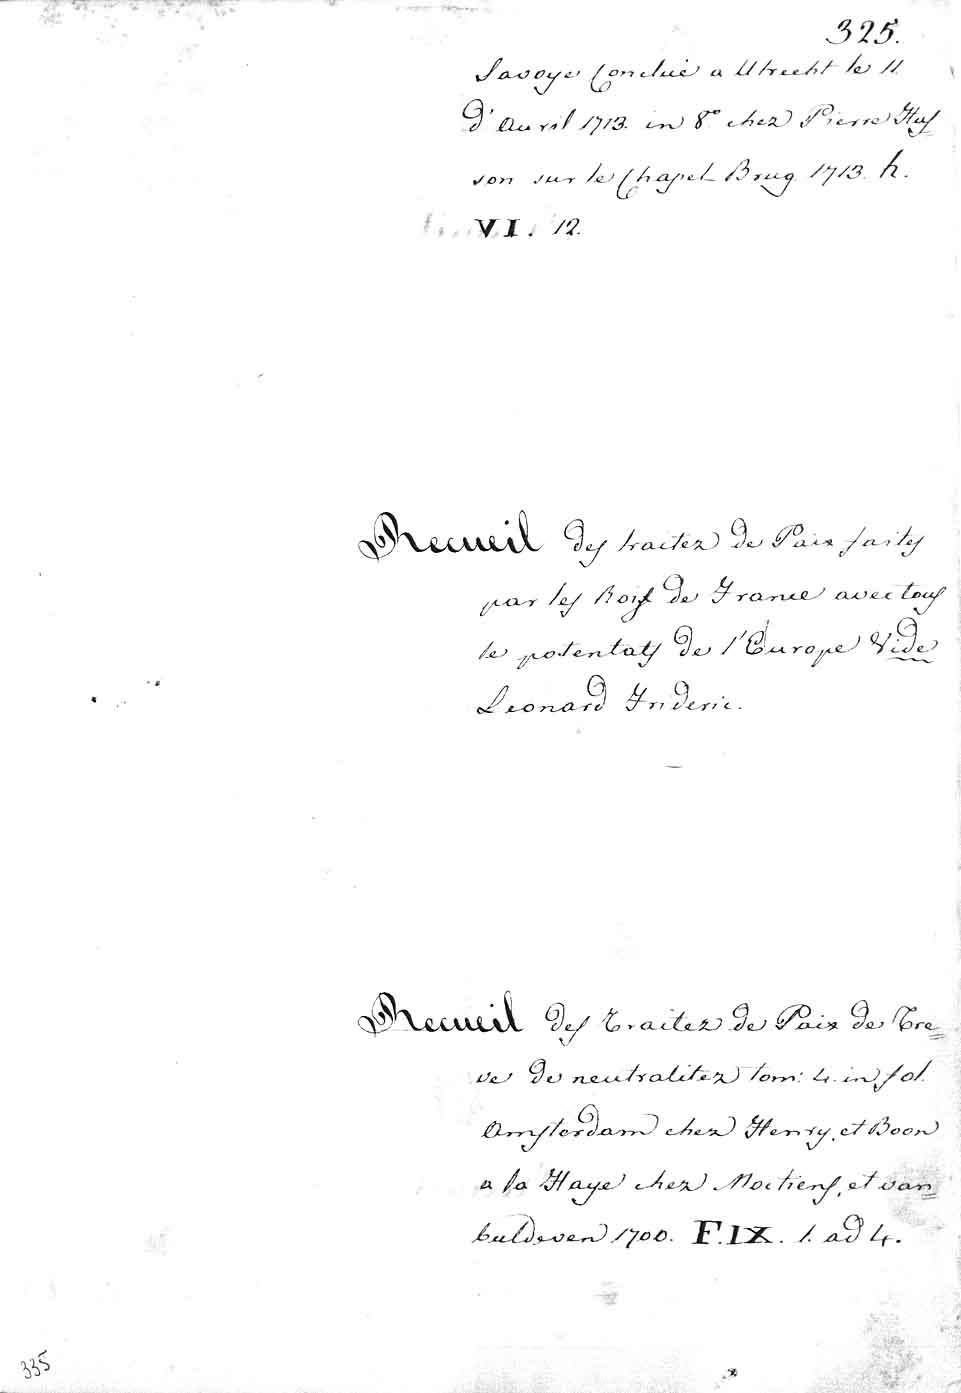 325.
Savoye Conclue a Utrecht le 11
d'Auril 1713. in 8° chez Pierre Hus=
son sur le Chapel Brug 1713. h.
VI. 12.
Recueil des traitez de Paix faites
par les Rois de France avec tous
le potentats de l'Europe Vide
Leonard Frideric.
Recueil des Traitez de Paix de Tre=
ve de neutralitez tom: 4. in fol.
Amsterdam chez Henry, et Boon
a la Haye chez Moetiens, et van=
buldeven 1700. F.IX. 1. ad 4.
335